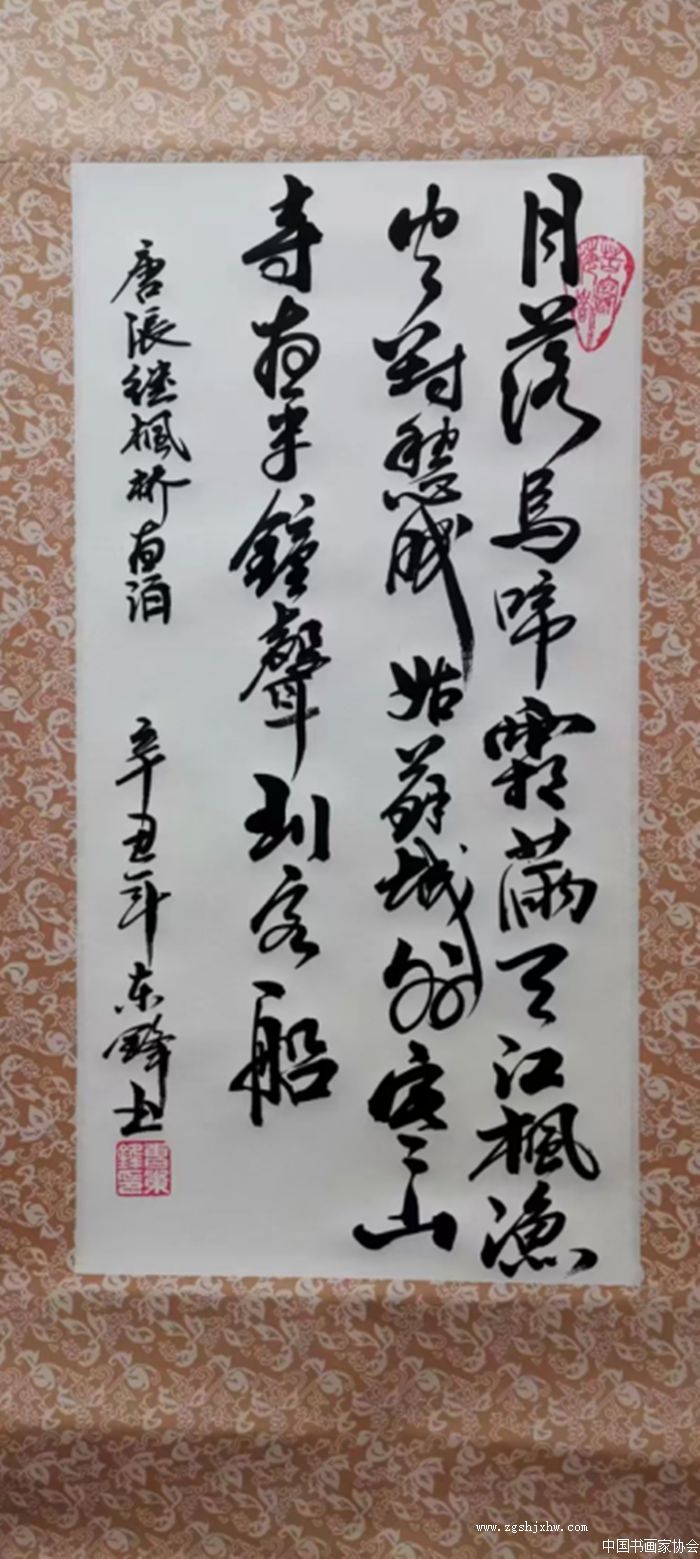 月落烏啼霜滿天江楓漁
火對愁眠姑蘇城外寒山
寺夜半鐘聲到客船
唐張继楓桥夜泊 辛丑年东鋒书
www.zgshjxhw.com
中国书画家协会